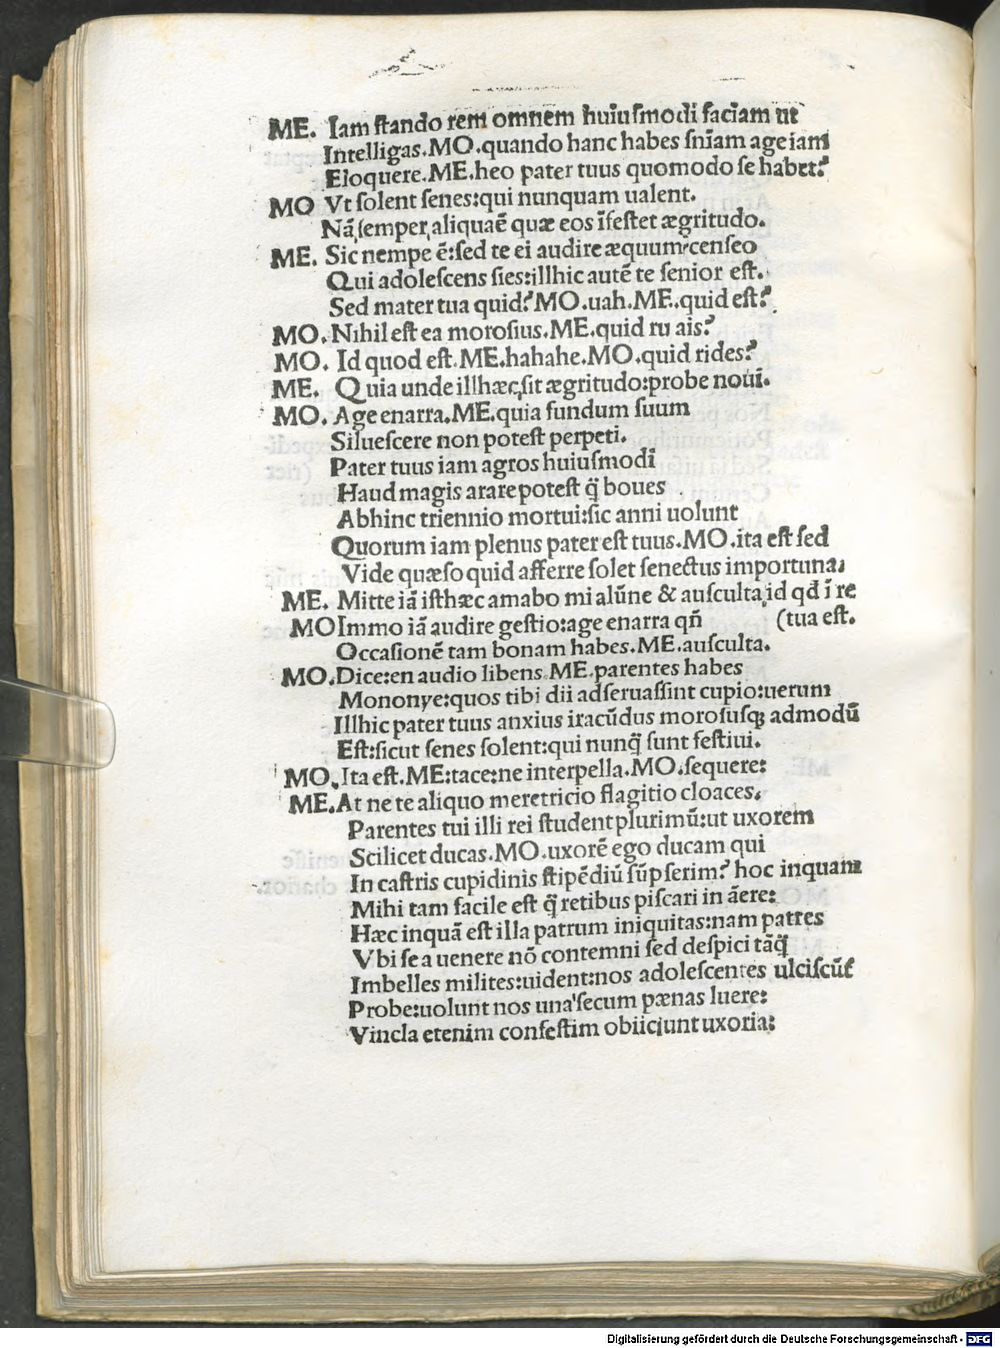 ME. Iam ſtando rem omnem huiuſmodi faciam ut
Intelligas.MO.quando hanc habes ſniam age iam
Eloquere.ME.heo pater tuus quomodo ſe habet?
MO Vt ſolent ſenes:qui nunquam ualent.
Nā ſemper aliqua ē quæ eos īfeſtet ægritudo.
ME. Sic nempe ē:ſed te ei audire æquum cenſeo
Qui adoleſcens ſies:illhic autē te ſenior eſt.
Sed mater tua quid?MO.uah.ME.quid eſt?
MO. Nihil eſt ea moroſius.ME.quid tu ais?
MO. Id quod eſt.ME.hahahe.MO.quid rides?
ME. Quia unde illhæc ſit ægritudo:probe noui.
MO. Age enarra.ME.quia fundum ſuum
Silueſcere non poteſt perpeti.
Pater tuus iam agros huiuſmodi
Haud magis arare poteſt q̃ boues
Abhinc triennio mortui:ſic anni uolunt
Quorum iam plenus pater eſt tuus.MO.ita eſt ſed
Vide quæſo quid afferre ſolet ſenectus importuna,
ME. Mitte iā iſthæc amabo mi alūne & auſculta id qd̄ ī re
(tua eſt.
MO Immo iā audire geſtio:age enarra qñ
Occaſionē tam bonam habes.ME.auſculta.
MO.Dice:en audio libens.ME.parentes habes
Mononye:quos tibi dii adſeruaſſint cupio:uerum
Illhic pater tuus anxius iracūdus moroſuſq; admodū
Eſt:ſicut ſenes ſolent:qui nunq̃ ſunt feſtiui.
MO.Ita eſt.ME:tace:ne interpella.MO.ſequere:
ME.At ne te aliquo meretricio flagitio cloaces,
Parentes tui illi rei ſtudent plurimū:ut uxorem
Scilicet ducas.MO.uxorē ego ducam qui
In caſtris cupidinis ſtipēdiū ſūpſerim? hoc inquam
Mihi tam facile eſt q̃ retibus piſcari in āere:
Hæc inquā eſt illa patrum iniquitas:nam patres
Vbi ſe a uenere nō contemni ſed deſpici tāq̃
Imbelles milites:uident:nos adoleſcentes ulciſcūt
Probe:uolunt nos una ſecum pænas luere:
Vincla etenim confeſtim obiiciunt uxoria:
Digitalisierung gefördert durch die Deutsche Forschungsgemeinschaft - DFG